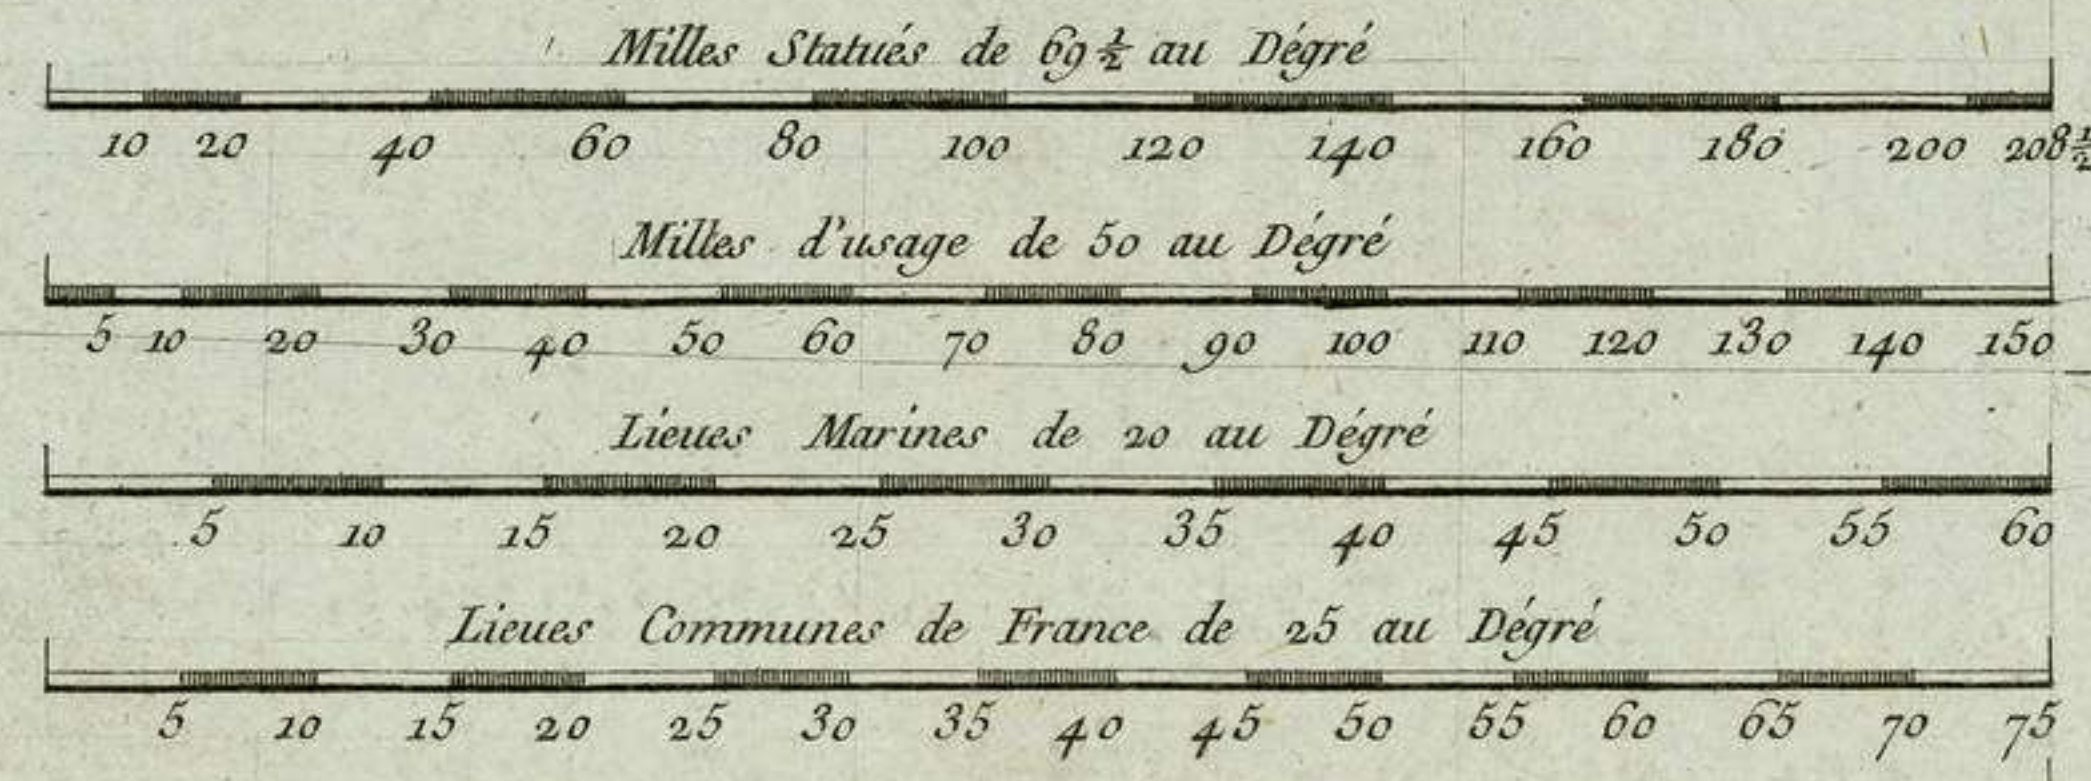 Milles Statués de 69 ½ au Dégré
10 20 40 60 80 100 120 140 160 180 200 208 ½
Milles d'usage de 50 au Dégré
5 10 20 30 40 50 60 70 80 90 100 110 120 130 140 150
Lieues Marines de 20 au Dégré
5 10 15 20 25 30 35 40 45 50 55 60
Lieues Communes de France de 25 au Dégré
5 10 15 20 25 30 35 40 45 50 55 60 65 70 75